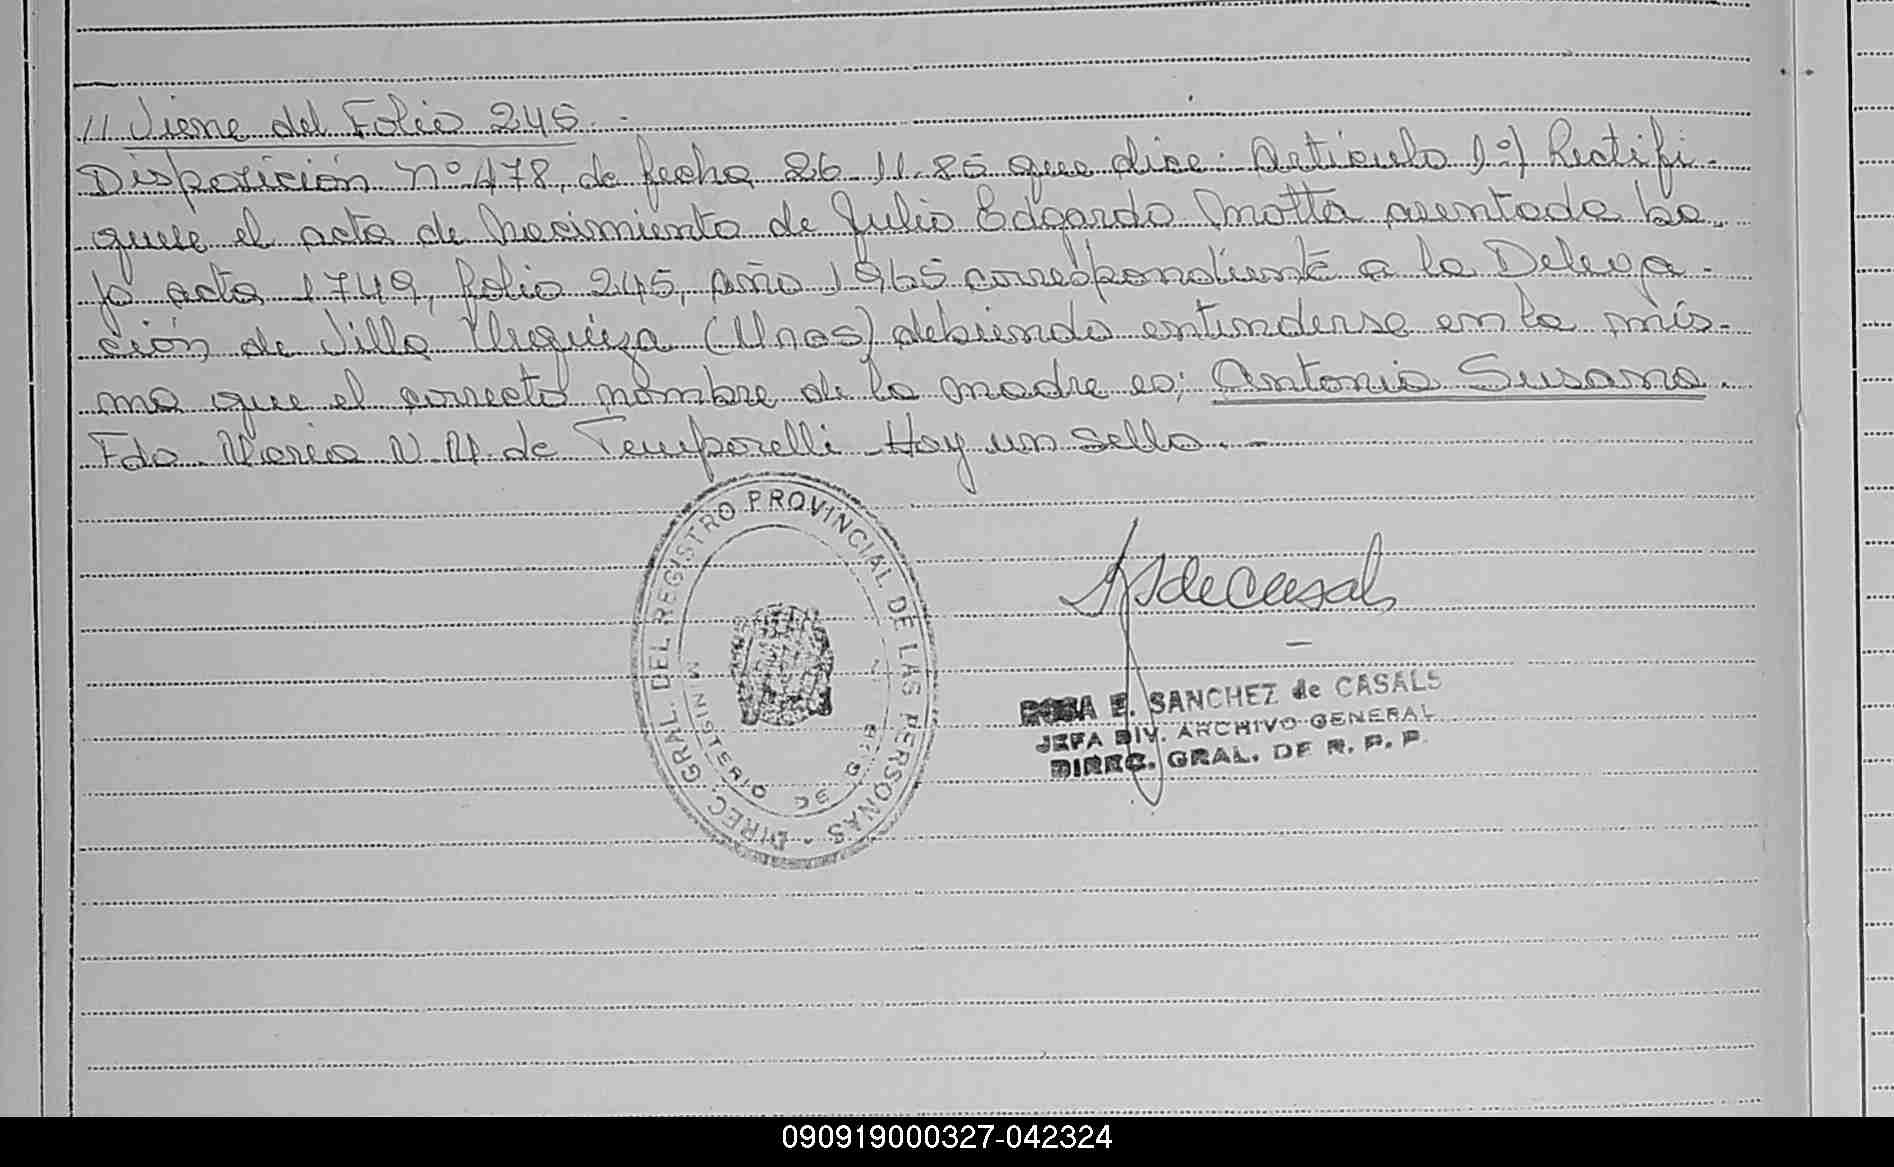 // Viene del Folio 245.-
Disposición nº 478, de fecha 26-11-85 que dice: Artículo 1º) Rectifi-
quese el acta de nacimiento de Julio Edgardo Motta asentada ba-
jo acta 1749, folio 245, año 1965 correspondiente a la Delega-
ción de Villa Urquiza (Unos) debiendo entenderse en la mis-
ma que el correcto nombre de la madre es: Antonia Susana.
Fdo. Maria N. M. de Temporelli - Hay un sello.-
DIREC. GRAL. DEL REGISTRO PROVINCIAL DE LAS PERSONAS
MINISTERIO DE
deCasals
ROSA E. SANCHEZ de CASALS
JEFA DIV. ARCHIVO GENERAL
DIREC. GRAL. DE R. P. P.
090919000327-042324